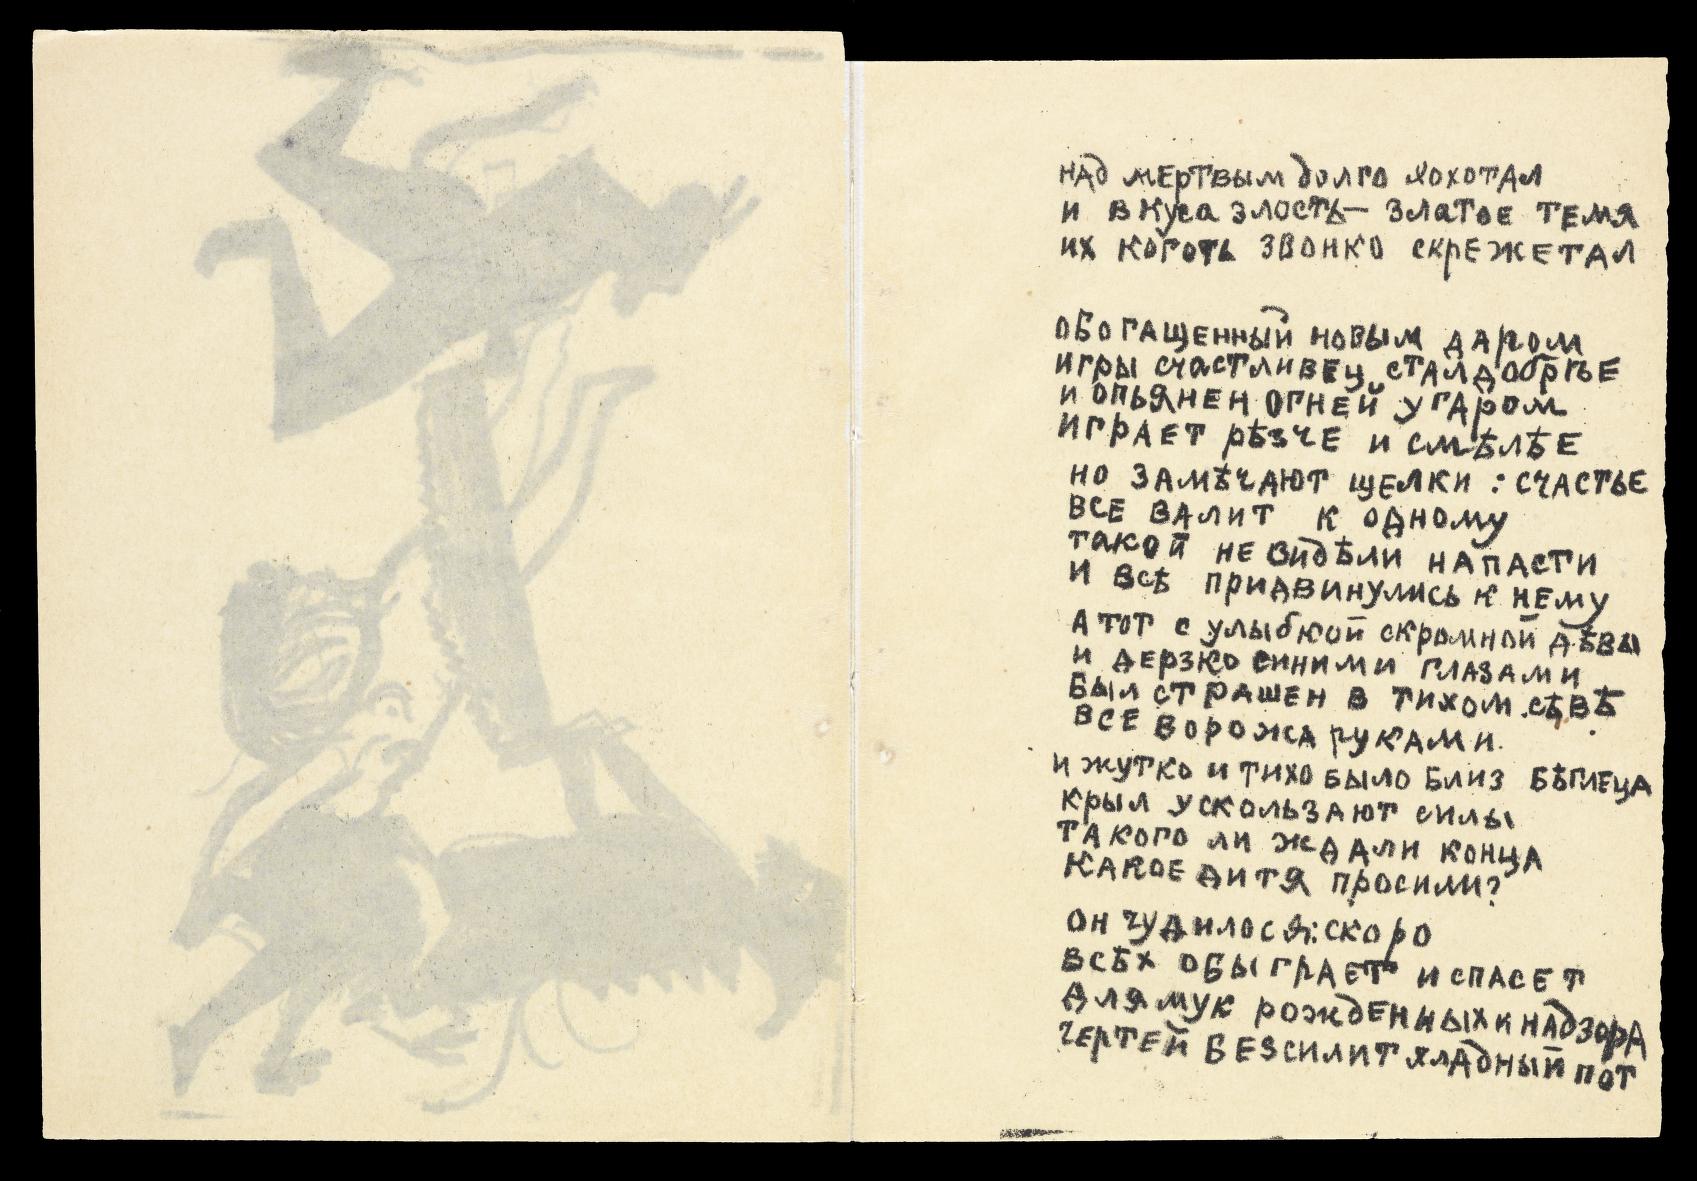 над мертвым долго хохотал
и вкуса злость — златое темя
их коготь звонко скрежетал
обогащенный новым даром
игры счастливец стал добрѣе
и опьянен огней угаром
играет рѣзче и смѣлѣе
но замѣчают щелки : счастье
все валит к одному
такой не видѣли напасти
и всѣ придвинулись к нему
а тот с улыбкой скромной дѣвы
и дерзко синими глазами
был страшен в тихом сѣвѣ
все ворожа руками.
и жутко и тихо было близ бѣглеца
крыл ускользают силы
такого ли ждали конца
какое дитя просили?
он чудилося: скоро
всѣх обыграет и спасет
для мук рожденных и надзора
чертей безсилит хладный пот